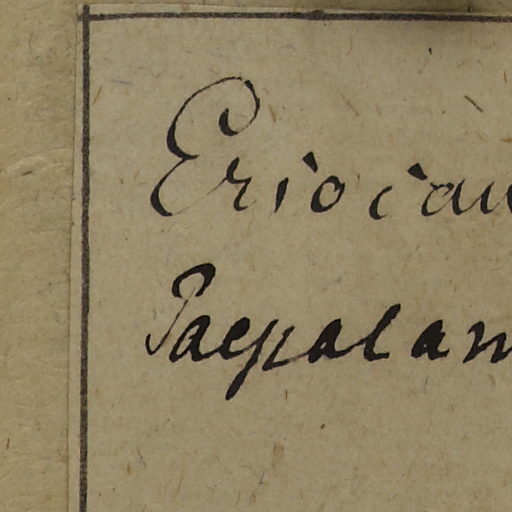 Eriocau
Paepalan